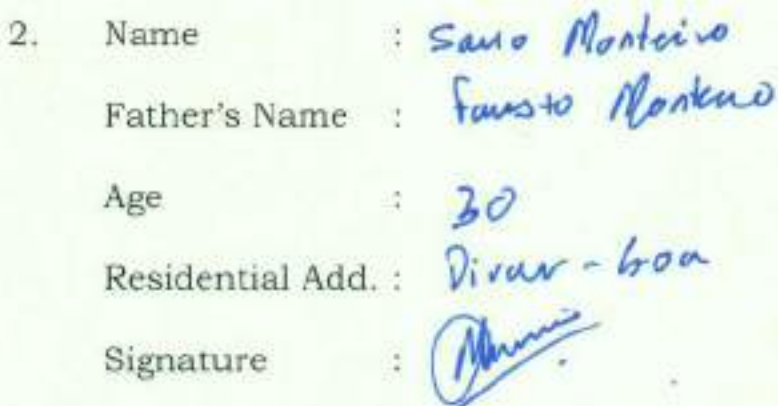 2. Name : Savio Monteiro
Father's Name : Fausto Monteiro
Age : 30
Residential Add. : Divar - Goa
Signature :